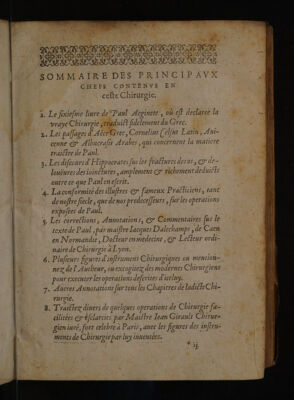 SOMMAIRE DES PRINCIPAVX
CHEFS CONTENVS EN
ceste Chirurgie.
1. Le sixiesme liure de Paul Aeginete, où est declaree la
vraye Chirurgie, traduict fidelement du Grec.
2. Les passages d'Aëce Grec, Cornelius Celsus Latin, Aui-
cenne & Albucrasis Arabes, qui concernent la matiere
traictee de Paul.
3. Les discours d'Hippocrates sus les fractures des os, & des-
loüeures des ioinctures, amplement & richement deduicts
outre ce que Paul en escrit.
4. La conformité des illustres & fameux Practiciens, tant
de nostre siecle, que de nos predecesseurs, sur les operations
exposees de Paul.
5. Les corrections, Annotations, & Commentaires sus le
texte de Paul, par maistre Iacques Dalechamps, de Caen
en Normandie, Docteur en medecine, & Lecteur ordi-
naire de Chirurgie à Lyon.
6. Plusieurs figures d'instrumens Chirurgiques ou mention-
nez de l'Autheur, ou excogitez des modernes Chirurgiens
pour executer les operations descrites d'iceluy.
7. Autres Annotations sur tous les Chapitres de ladicte Chi-
rurgie.
8. Traictez diuers de quelques operations de Chirurgie fa-
cilitées & esclarcies par Maistre Iean Girault Chirur-
gien iuré, fort celebre à Paris, auec les figures des instru-
ments de Chirurgie par luy inuentées.
* ij